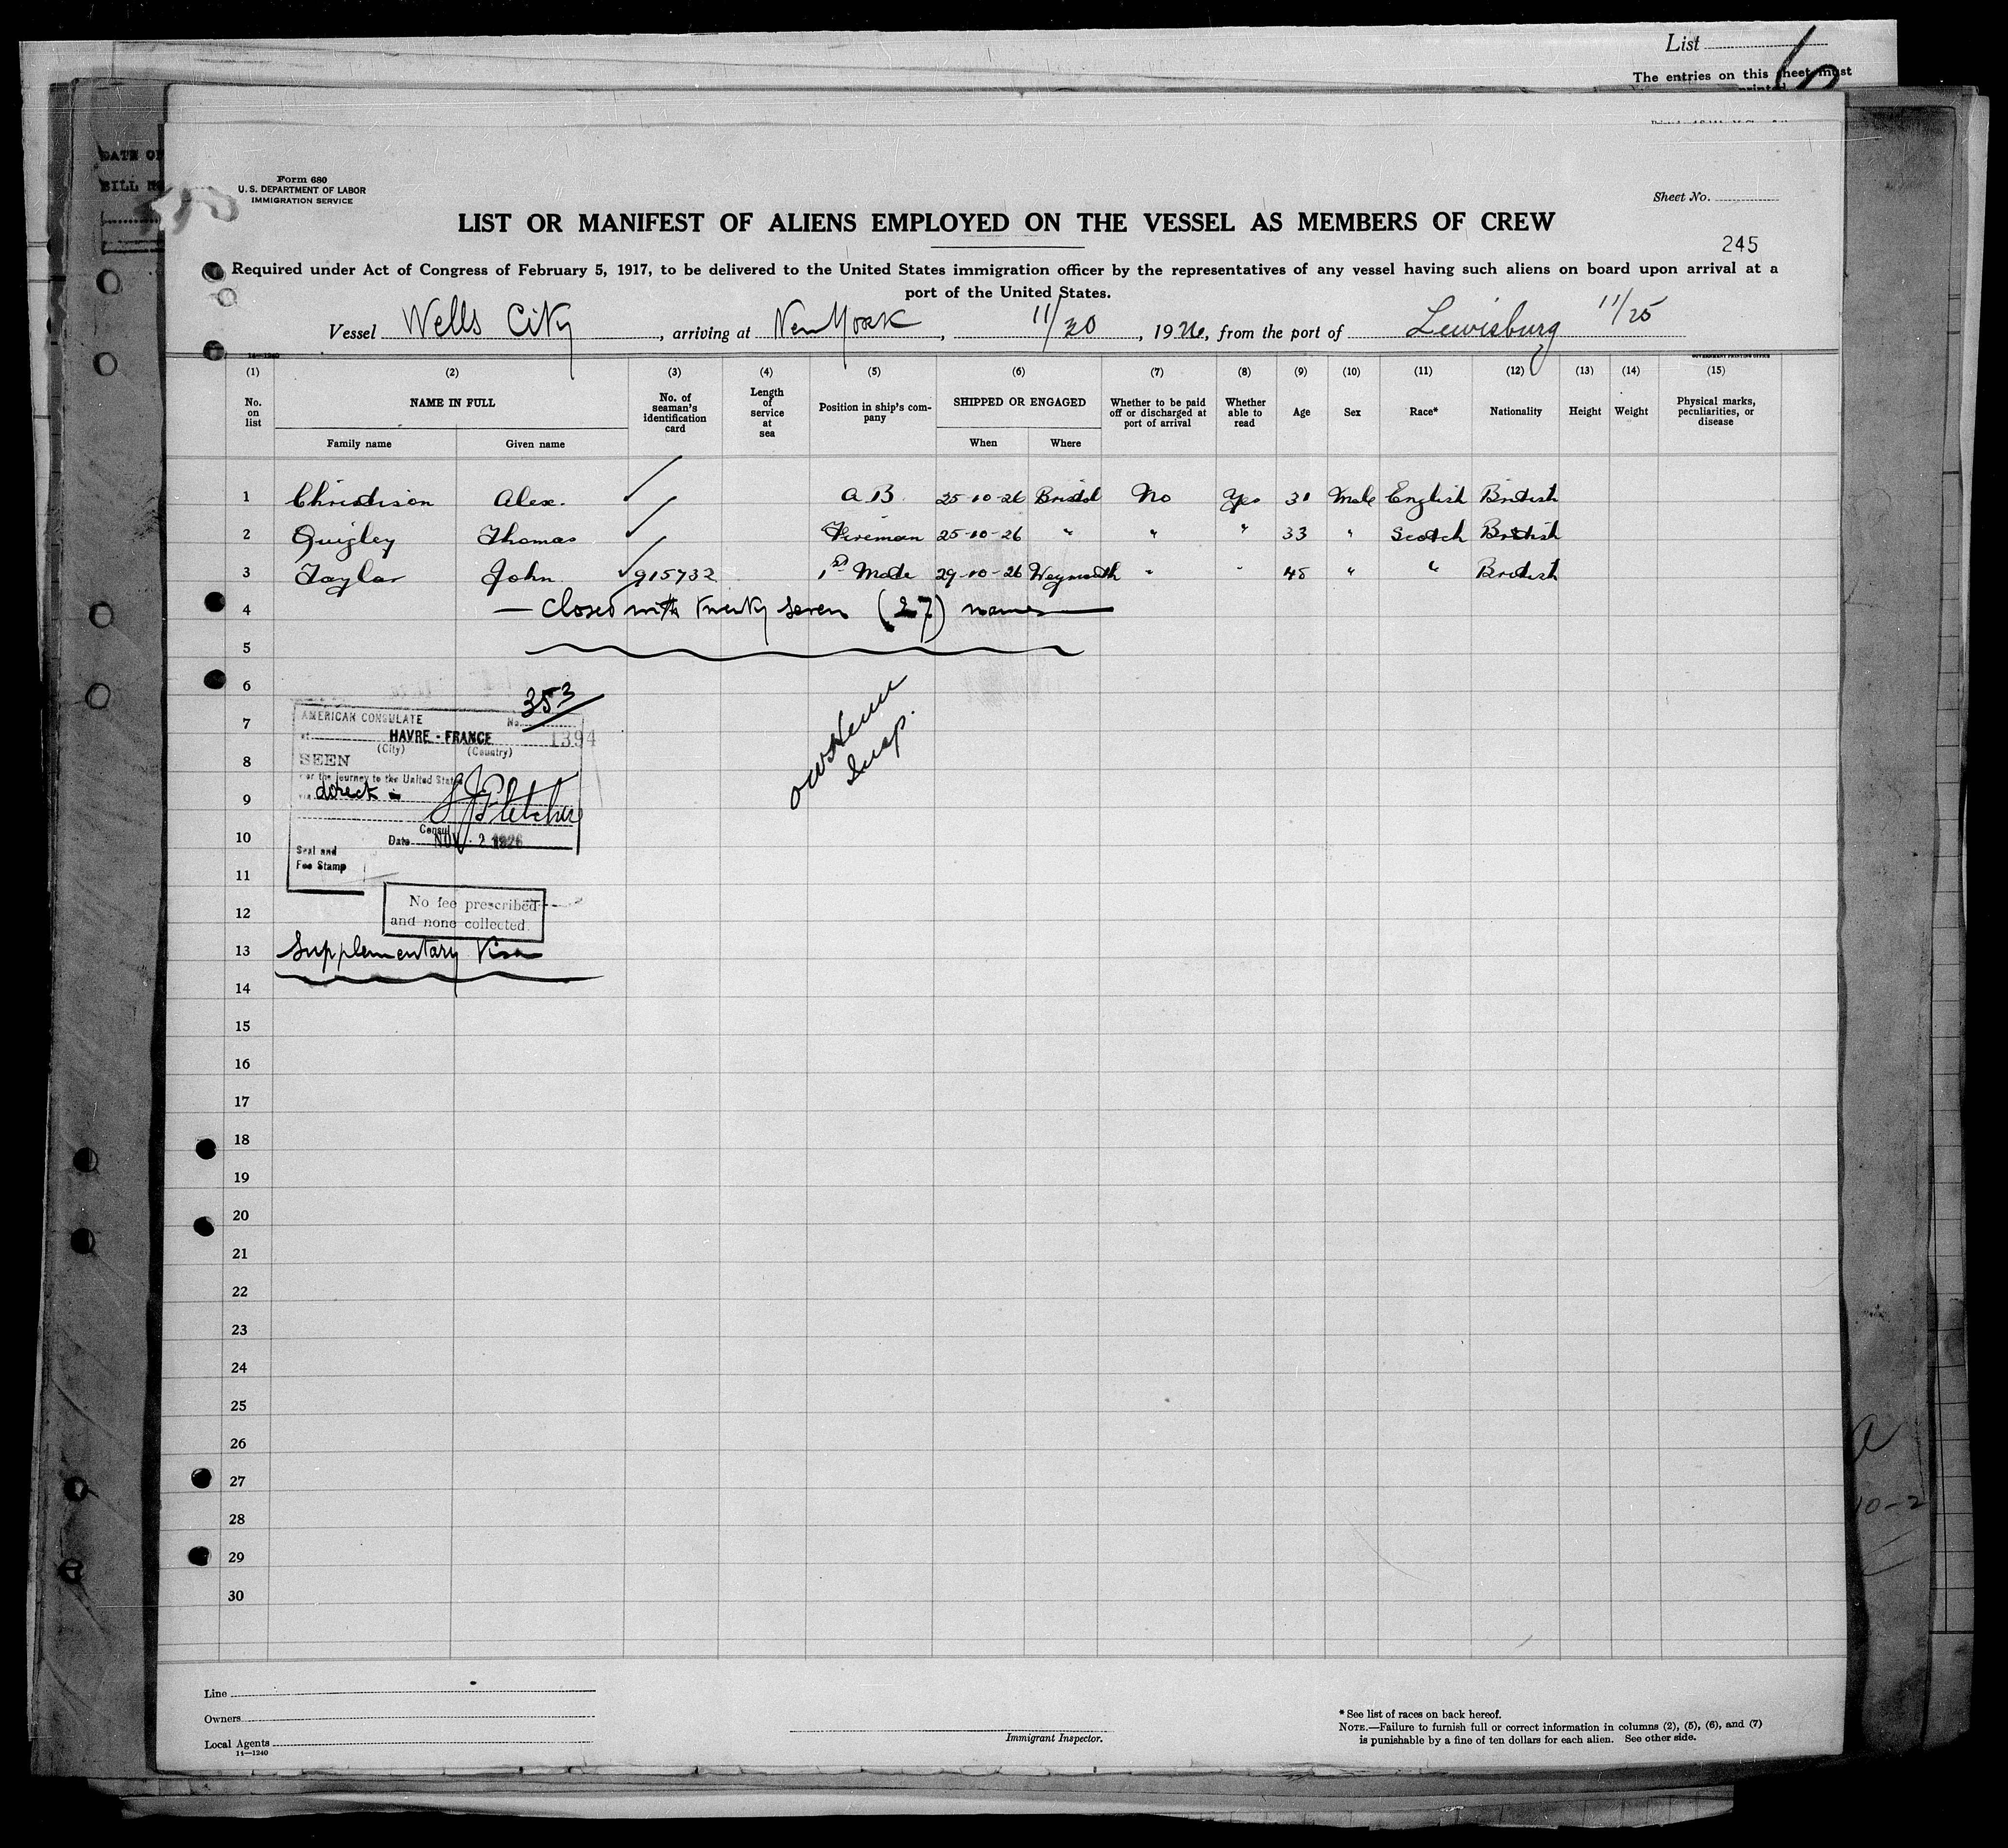 List
The entries on this sheet must
DATE OF
BILL
Form 680
U.S. DEPARTMENT OF LABOR
IMMIGRATION SERVICE
Sheet No.
LIST OR MANIFEST OF ALIENS EMPLOYED ON THE VESSEL AS MEMBERS OF CREW
245
Required under Act of Congress of February 5, 1917, to be delivered to the United States immigration officer by the representatives of any vessel having such aliens on board upon arrival at a
port of the United States.
Vessel Wells City, arriving at New York, 11/30, 1926, from the port of Lewisburg 11/25
14—1240 GOVERNMENT PRINTING OFFICE
(1) (2) (3) (4) (5) (6) (7) (8) (9) (10) (11) (12) (13) (14) (15)
No. on list NAME IN FULL No. of seaman's identification card Length of service at sea Position in ship's company SHIPPED OR ENGAGED Whether to be paid off or discharged at port of arrival Whether able to read Age Sex Race* Nationality Height Weight Physical marks, peculiarities, or disease
Family name Given name When Where
1 Christison Alex. A B. 25-10-26 Bristol No Yes 31 Male English British
2 Quigley Thomas Fireman 25-10-26 " " " 33 " Scotch British
3 Taylor John 915732 1st Mate 29-10-26 Weymouth " " 48 " " British
4 — Closed with twenty seven (27) names —
5
6
7
8
9
10
11
12
13 Supplementary Visa
14
15
16
17
18
19
20
21
22
23
24
25
26
27
28
29
30
353
AMERICAN CONSULATE
at HAVRE - FRANCE No. 1394
(City) (Country)
SEEN
For the journey to the United States
via direct
Fletcher
Consul
Date NOV. 2 1926
Seal and
Fee Stamp
No fee prescribed
and none collected.
Insp.
a
10-2
Line
Owners
Local Agents
14—1240
Immigrant Inspector.
* See list of races on back hereof.
NOTE.—Failure to furnish full or correct information in columns (2), (5), (6), and (7)
is punishable by a fine of ten dollars for each alien. See other side.